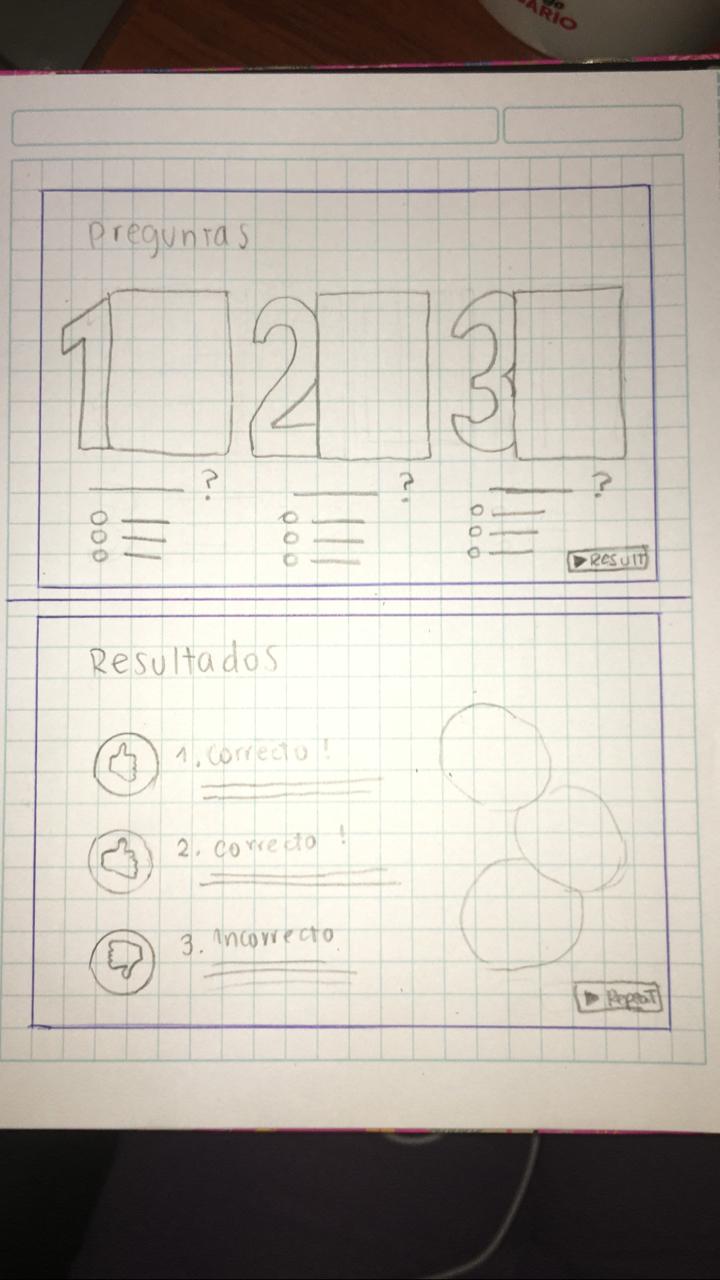 ARIO
Preguntas
1 2 3
? ? ?
▶ RESULT
Resultados
1. Correcto!
2. Correcto!
3. Incorrecto
▶ Repeat